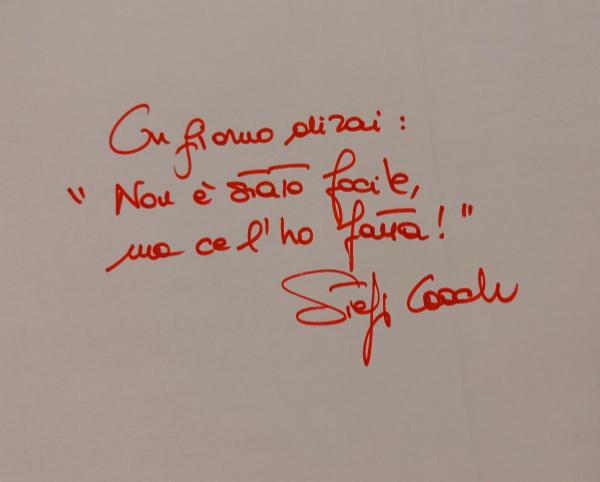 Un giorno dirai:
"Non è stato facile,
ma ce l'ho fatta!"
Stefy Coach